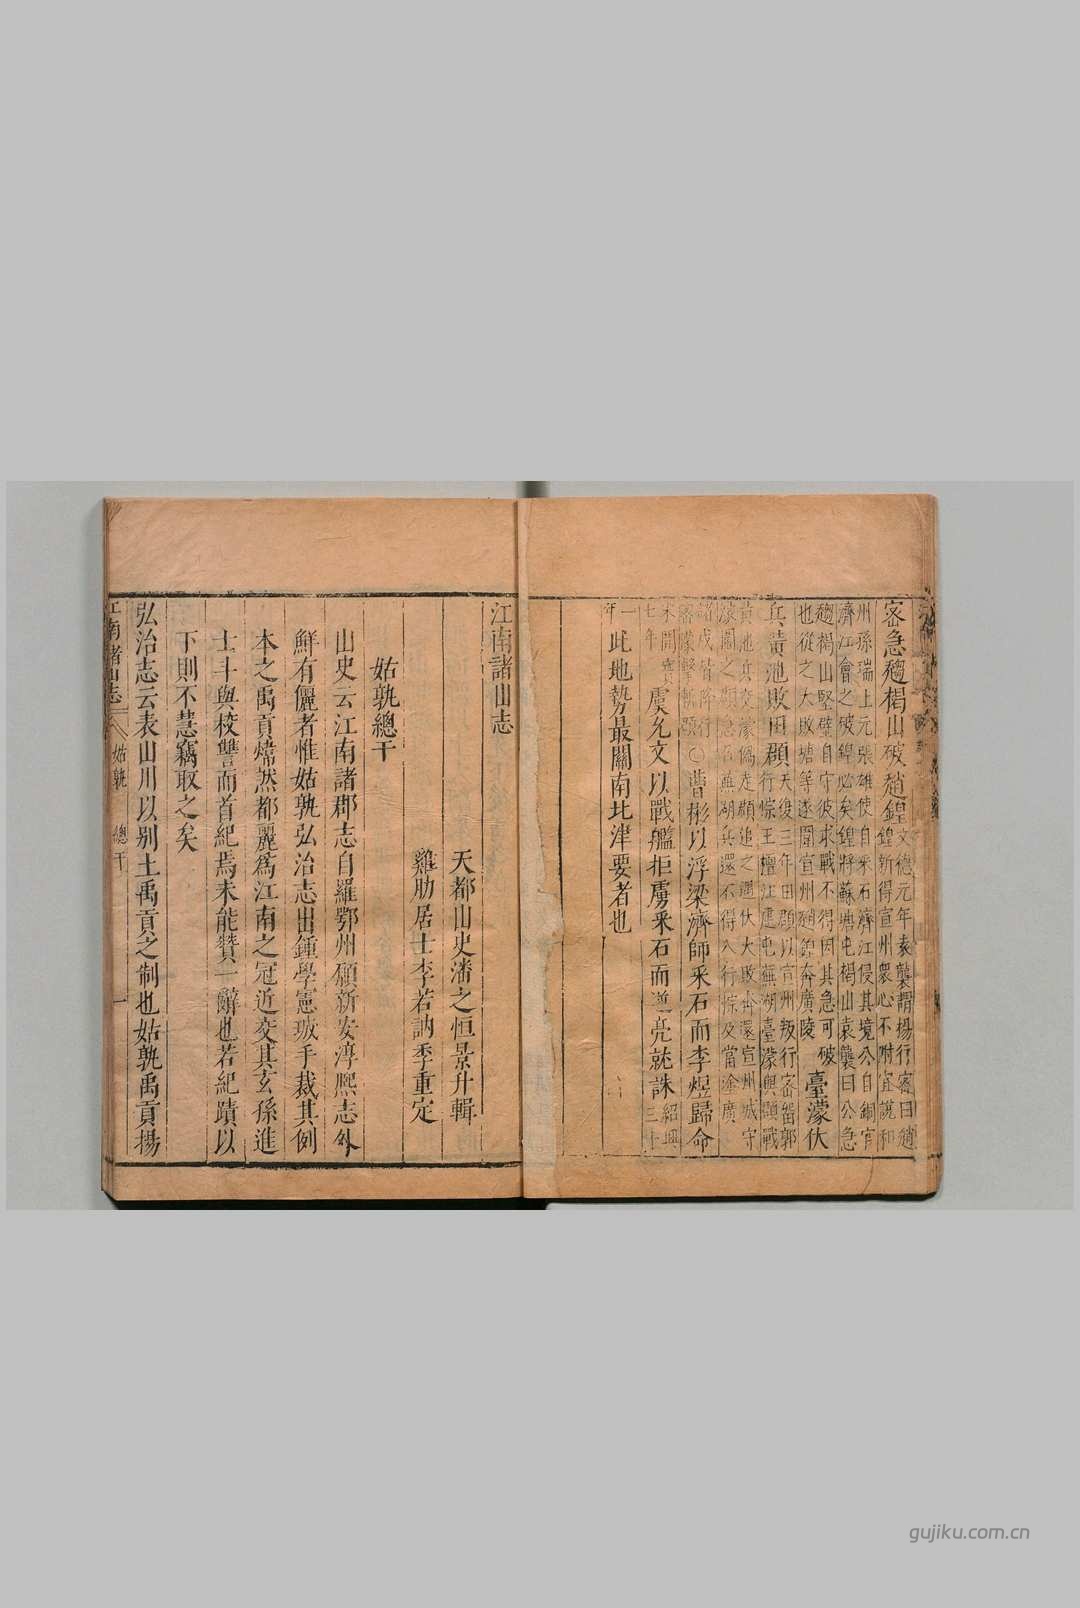 密急趨楬山破趙鍠文德元年袁襲謂楊行密曰趙
鍠新得宣州衆心不附宜說和
州孫瑞上元張雄使自采石濟江侵其境公自銅官
濟江會之破鍠必矣鍠將蘇塘屯楬山袁襲曰公急
趨楬山堅壁自守彼求戰不得因其急可破
也從之大敗塘等遂圍宣州趙鍠奔廣陵
臺濛伏
兵黃池敗田頵天復三年田頵以宣州叛行密畱郭
行悰王壇汪建屯蕪湖臺濛與頵戰
黃池兵交濛偽走頵追之遇伏大敗奔還宣州城守
濛圍之頵急召蕪湖兵還不得入行悰及當塗廣
諸戍皆降行
密濛擊斬頵
○曹彬以浮梁濟師采石而李煜歸命
宋開寶
七年
虞允文以戰艦拒虜采石而逆亮就誅紹興
三十
一
年
此地勢最關南北津要者也
江南諸山志
天都山史潘之恒景升輯
雞肋居士李若訥季重定
姑孰總干
山史云江南諸郡志自羅鄂州願新安淳熙志外
鮮有儷者惟姑孰弘治志出鍾學憲珹手裁其例
本之禹貢煒然都麗為江南之冠近交其玄孫進
士斗與校讐而首紀焉未能贊一辭也若紀蹟以
下則不慧竊取之矣
弘治志云表山川以别土禹貢之制也姑孰禹貢揚
江南諸山志
姑孰
總干
一
gujiku.com.cn